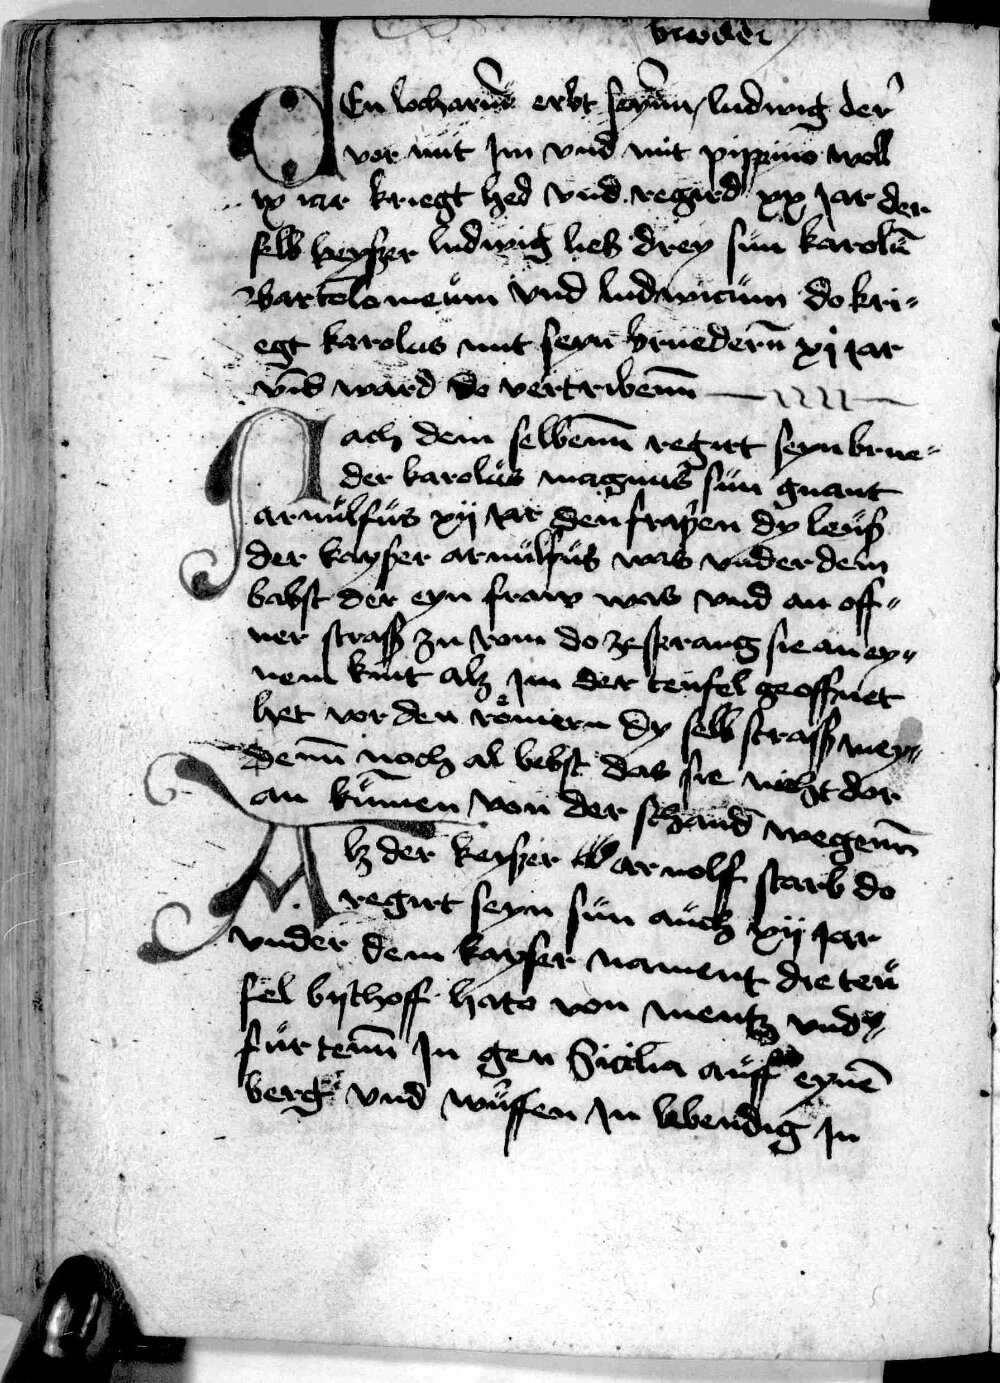 bruder
DEn lotharium erbt seynnn / ludwig der
vor mit Im vnd mit pippino woll
ix iar kriegt hed vnd regird xx Jar der
selb keyszer ludwig lies drey sün karolū
Bartolomeüm vnd ludwicum do kri-
egt karolus mit seyn bruedern̄ xj iar
vnd ward do vertribenn̄
Nach dem selbenn̄ regirt seyn brue-
der karolus magnus sün gnant
arnülfüs xij iar den frassen dy leüß
der kayser arnülfüs was vnder dem
babst der eyn fraw was vnd an off-
ner strass zu rom do zesprang sie an ey-
nem kint alz Im der teufel geoffnet
het vor den römern dy selb strass mey-
denn̄ noch al bebst das sie nicht dor
an kümen von der schand wegenn̄
Alz der keyszer arnolff starb do
regirt seyn sün auch xij Jar
vnder dem kayser nament die teü
fel bischoff hato von mentz vnd
fürtenn̄ In gen Sicilia auff eynē
berg vnd würffen In lebendig In